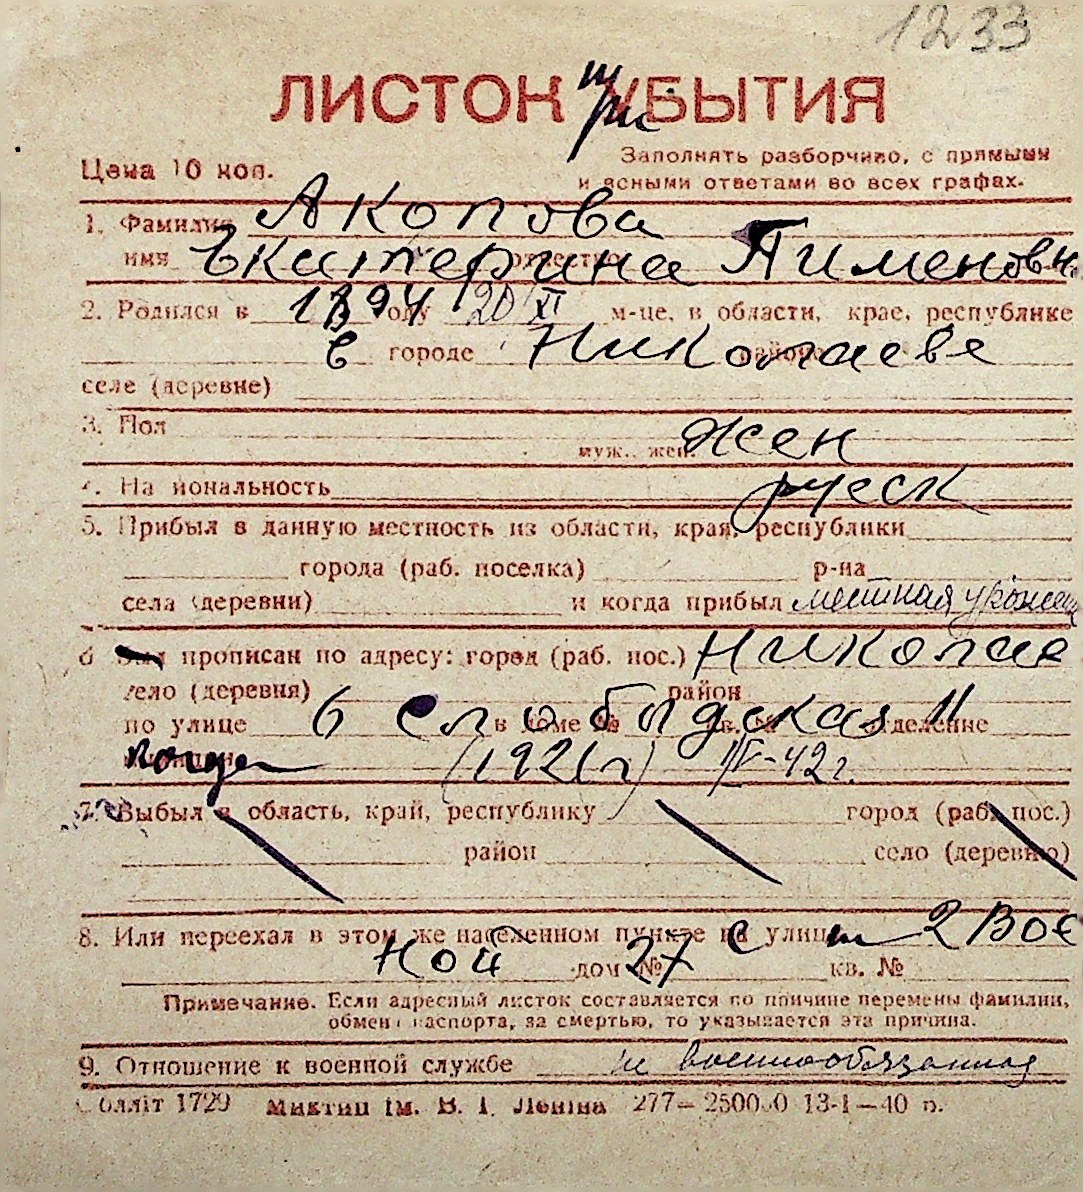 1233
ЛИСТОК при УБЫТИЯ
Цена 10 коп.
Заполнять разборчиво, с прямыми
и ясными ответами во всех графах.
1. Фамилия Акопова
имя Екатерина отчество Пименовн
2. Родился в 1894 году 20 XI м-це, в области, крае, республике
в городе Николаеве районе
селе (деревне)
3. Пол муж., жен. жен
4. Национальность русск
5. Прибыл в данную местность из области, края, республики
города (раб. поселка) р-на
села (деревни) и когда прибыл местная урожен
6 Был прописан по адресу: город (раб. пос.) Николае
село (деревня) район
по улице 6 Слободская 11 в доме № кв. № отделение
(1921г) IV-42г.
7. Выбыл в область, край, республику город (раб. пос.)
район село (деревню)
8. Или переехал в этом же населенном пункте на улицу 2 Вое
ной дом № 27 с кв. №
Примечание. Если адресный листок составляется по причине перемены фамилии,
обмена паспорта, за смертью, то указывается эта причина.
9. Отношение к военной службе не военнообязанная
Облліт 1729 Миктип ім. В. І. Леніна 277—250000 13-1—40 р.